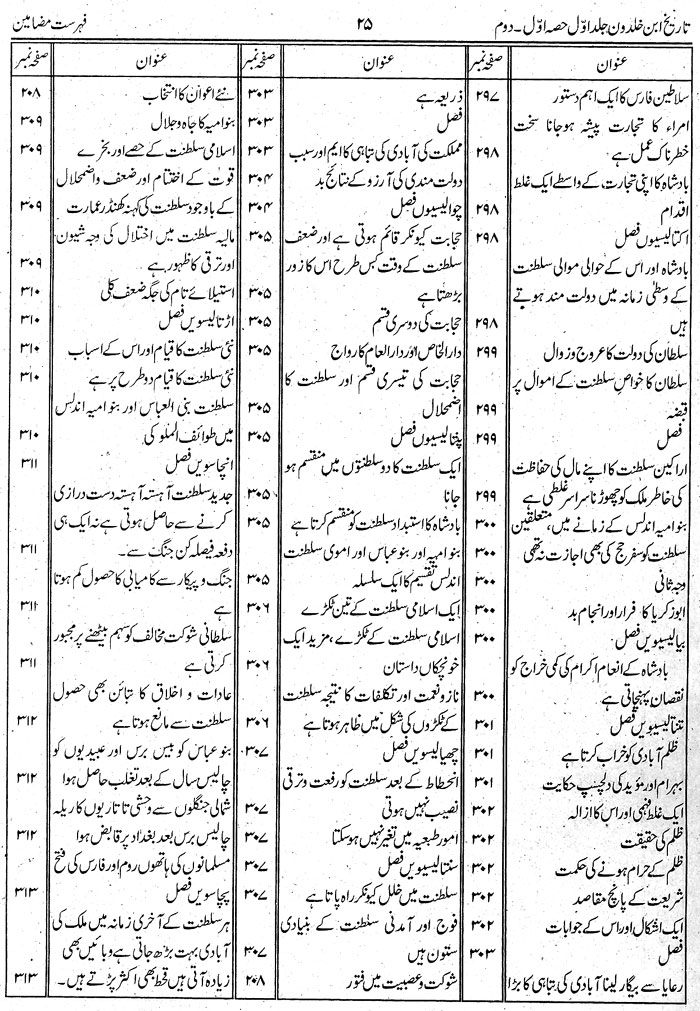 تاریخ ابن خلدون جلد اوّل حصہ اوّل ۔ دوم
۲۵
فہرست مضامین
عنوان
صفحہ نمبر
سلاطین فارس کا ایک اہم دستور ۲۹۷
امراء کا تجارت پیشہ ہو جانا سخت
خطرناک عمل ہے ۲۹۸
بادشاہ کا اپنی تجارت، کے واسطے ایک غلط
اقدام ۲۹۸
اکتالیسیوں فصل ۲۹۸
بادشاہ اور اس کے حوالی موالی سلطنت
کے وسطی زمانہ میں دولت مند ہوتے
ہیں ۲۹۸
سلطان کی دولت کا عروج و زوال ۲۹۹
سلطان کا خواصِ سلطنت کے اموال پر
قبضہ ۲۹۹
فصل ۲۹۹
اراکین سلطنت کا اپنے مال کی حفاظت
کی خاطر ملک کو چھوڑنا سراسر غلطی ہے ۲۹۹
بنو امیہ اندلس کے زمانے میں، متعلقین ۳۰۰
سلطنت کو سفر حج کی بھی اجازت نہ تھی ۳۰۰
وجہ ثانی ۳۰۰
ابوزکریا کا فرار اور انجام بد ۳۰۰
بیالیسویں فصل ۳۰۰
بادشاہ کے انعام اکرام کی کمی خراج کو
نقصان پہنچاتی ہے ۳۰۰
تنتالیسیویں فصل ۳۰۱
ظلم آبادی کو خراب کرتا ہے ۳۰۱
بہرام اور موبد کی دلچسپ حکایت ۳۰۱
ایک غلط فہمی اور اس کا ازالہ ۳۰۲
ظلم کی حقیقت ۳۰۲
ظلم کے حرام ہونے کی حکمت ۳۰۲
شریعت کے پانچ مقاصد ۳۰۲
ایک اشکال اور اس کے جوابات ۳۰۲
فصل ۳۰۳
رعایا سے بیگار لینا آبادی کی تباہی کا بڑا
عنوان
صفحہ نمبر
ذریعہ ہے ۳۰۳
فصل ۳۰۳
مملکت کی آبادی کی تباہی کا اہم اور سبب ۳۰۳
دولت مندی کی آرزو کے نتائج بد ۳۰۴
چوالیسیوں فصل ۳۰۴
حجابت کیونکر قائم ہوتی ہے اور ضعف ۳۰۵
سلطنت کے وقت کس طرح اس کا زور
بڑھتا ہے ۳۰۵
حجابت کی دوسری قسم ۳۰۵
دارالخاص اور دارالعام کا رواج ۳۰۵
حجابت کی تیسری قسم اور سلطنت کا
اضمحلال ۳۰۵
پنتالیسیوں فصل ۳۰۵
ایک سلطنت کا دو سلطنتوں میں منقسم ہو
جانا ۳۰۵
بادشاہ کا استبداد سلطنت کو منقسم کرتا ہے ۳۰۵
بنو امیہ اور بنو عباس اور اموی سلطنت
اندلس تقسیم کا ایک سلسلہ ۳۰۵
ایک اسلامی سلطنت کے تین ٹکڑے ۳۰۶
اسلامی سلطنت کے ٹکڑے، مزید ایک
خونچکاں داستان ۳۰۶
ناز و نعمت اور تکلفات کا نتیجہ سلطنت
کے ٹکڑوں کی شکل میں ظاہر ہوتا ہے ۳۰۶
چھیالیسویں فصل ۳۰۷
انحطاط کے بعد سلطنت کو رفعت و ترقی
نصیب نہیں ہوتی ۳۰۷
امور طبعیہ میں تغیر نہیں ہو سکتا ۳۰۷
سنتالیسیویں فصل ۳۰۷
سلطنت میں خلل کیونکر راہ پاتا ہے ۳۰۷
فوج اور آمدنی سلطنت کے بنیادی
ستون ہیں ۳۰۷
شوکت و عصبیت میں فتور ۲۰۸
عنوان
صفحہ نمبر
نئے اعوان کا انتخاب ۲۰۸
بنو امیہ کا جاہ و جلال ۳۰۹
اسلامی سلطنت کے حصے اور بخرے ۳۰۹
قوت کے اختتام اور ضعف و اضمحلال
کے باوجود سلطنت کی کہنہ کھنڈر عمارت ۳۰۹
مالیہ سلطنت میں اختلال کی وجہ شیون
اور ترقی کا ظہور ہے ۳۰۹
استیلائے تام کی جگہ ضعف کلی ۳۱۰
اڑتالیسویں فصل ۳۱۰
نئی سلطنت کا قیام اور اس کے اسباب ۳۱۰
نئی سلطنت کا قیام دو طرح پر ہے ۳۱۰
سلطنت بنی العباس اور بنو امیہ اندلس
میں طوائف الملوکی ۳۱۰
انچاسویں فصل ۳۱۱
جدید سلطنت آہستہ آہستہ دست درازی
کرنے سے حاصل ہوتی ہے نہ ایک ہی
دفعہ فیصلہ کن جنگ سے۔ ۳۱۱
جنگ و پیکار سے کامیابی کا حصول کم ہوتا
ہے ۳۱۱
سلطانی شوکت مخالف کو سہم بیٹھنے پر مجبور
کرتی ہے ۳۱۱
عادات و اخلاق کا تبائن بھی حصول
سلطنت سے مانع ہوتا ہے ۳۱۲
بنو عباس کو بیس برس اور عبیدیوں کو
چالیس سال کے بعد تغلب حاصل ہوا ۳۱۲
شمالی جنگلوں سے وحشی تاتاریوں کا ریلہ
چالیس برس بعد بغداد پر قابض ہوا ۳۱۲
مسلمانوں کی ہاتھوں روم اور فارس کی فتح
پچاسویں فصل ۳۱۳
ہر سلطنت کے آخری زمانہ میں ملک کی
آبادی بہت بڑھ جاتی ہے وبائیں بھی
زیادہ آتی ہیں قحط بھی اکثر پڑتے ہیں۔ ۳۱۳